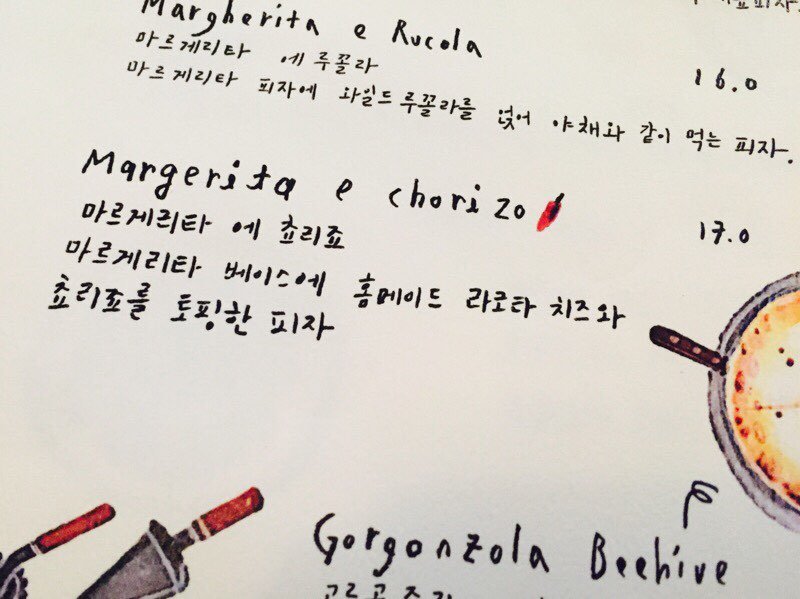 Margherita e Rucola
마르게리타 에 루꼴라 16.0
마르게리타 피자에 와일드 루꼴라를 얹어 야채와 같이 먹는 피자.
Margerita e chorizo
마르게리타 에 쵸리죠 17.0
마르게리타 베이스에 홈메이드 라로타 치즈와
쵸리죠를 토핑한 피자
Gorgonzola Beehive